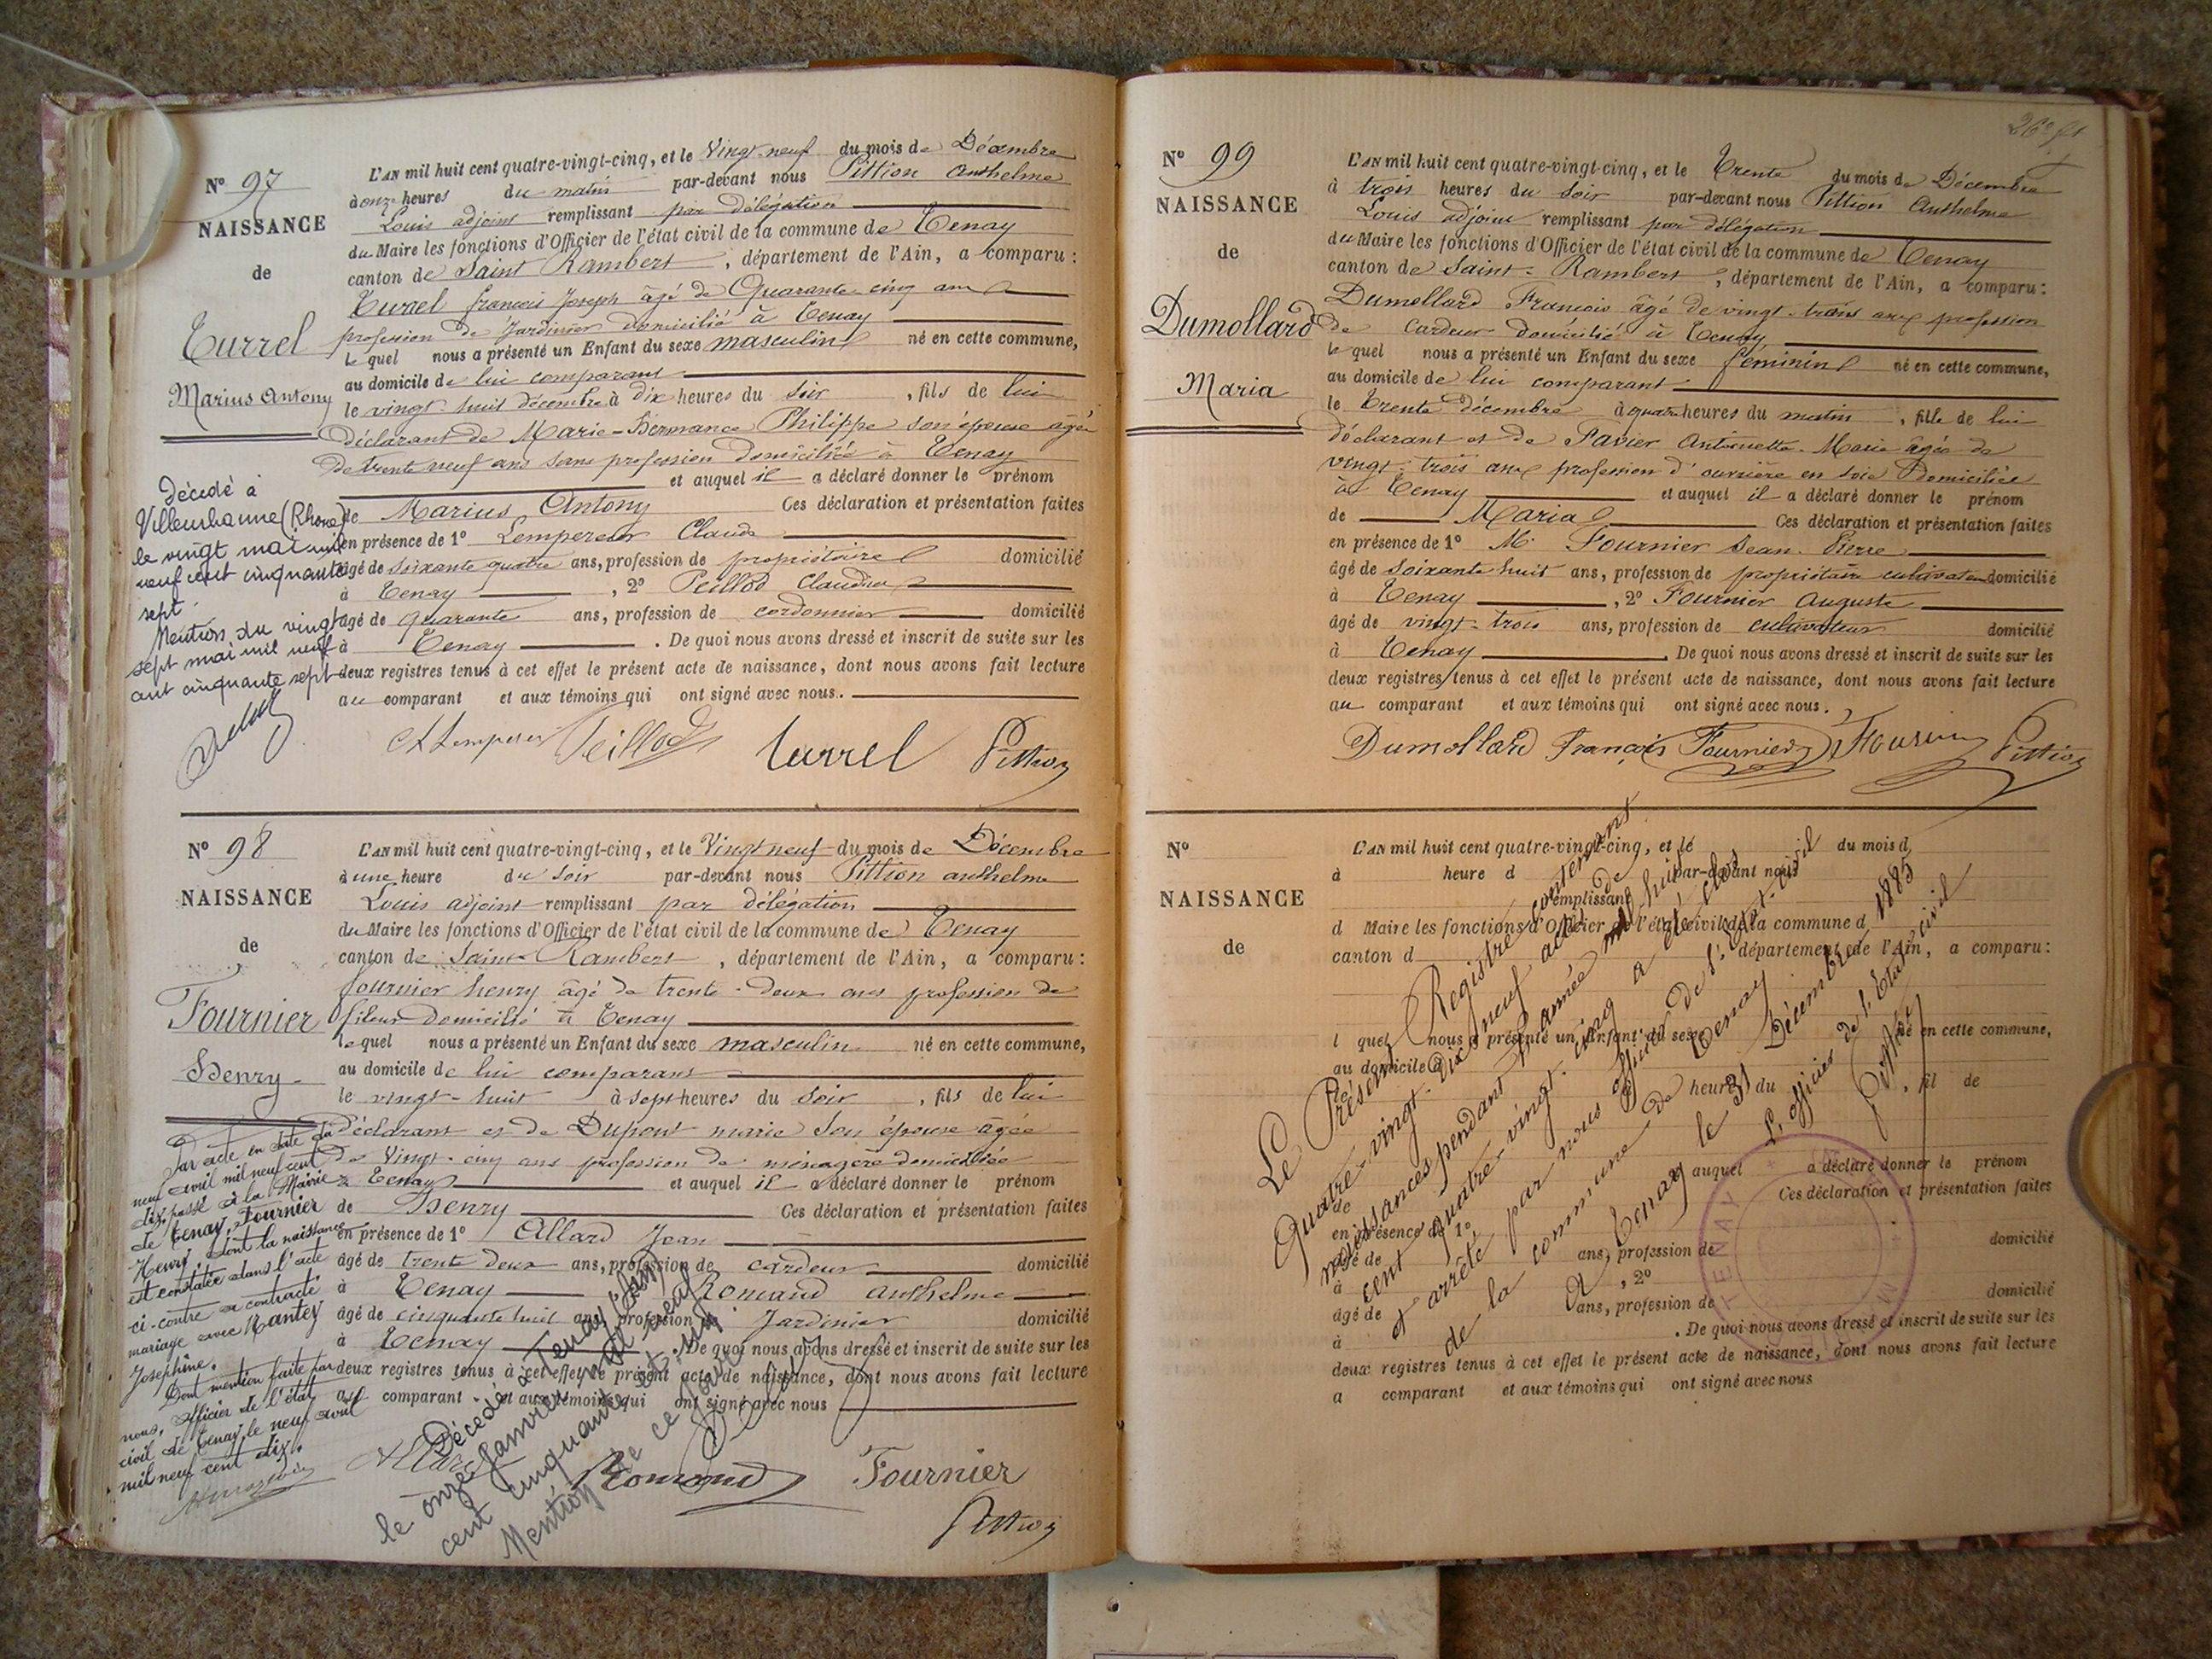 N° 97
NAISSANCE
de
Turrel
Marius Antony
L'AN mil huit cent quatre-vingt-cinq, et le Vingt-neuf du mois de Décembre
à onze heures du matin par-devant nous Pittion Anthelme
Louis adjoint remplissant par délégation
du Maire les fonctions d'Officier de l'état civil de la commune de Tenay
canton de Saint Rambert, département de l'Ain, a comparu :
Turrel françois Joseph âgé de Quarante-cinq ans
profession de Jardinier domicilié à Tenay
lequel nous a présenté un Enfant du sexe masculin né en cette commune,
au domicile de lui comparant
le vingt-huit décembre à dix heures du soir, fils de lui
déclarant de Marie-Hermance Philippe son épouse âgée
de trente neuf ans sans profession domiciliée à Tenay
et auquel il a déclaré donner le prénom
de Marius Antony Ces déclaration et présentation faites
en présence de 1° Lempereur Claude
âgé de soixante quatre ans, profession de propriétaire domicilié
à Tenay, 2° Peillod Claudius
âgé de quarante ans, profession de cordonnier domicilié
à Tenay. De quoi nous avons dressé et inscrit de suite sur les
deux registres tenus à cet effet le présent acte de naissance, dont nous avons fait lecture
au comparant et aux témoins qui ont signé avec nous.
Peillod Turrel Pittion
Décédé à
Villeurbanne (Rhône)
le vingt mai mil
neuf cent cinquante
sept.
Mention du vingt
sept mai mil neuf
cent cinquante sept
N° 98
NAISSANCE
de
Fournier
Henry
L'AN mil huit cent quatre-vingt-cinq, et le Vingt neuf du mois de Décembre
à une heure du soir par-devant nous Pittion anthelme
Louis adjoint remplissant par délégation
du Maire les fonctions d'Officier de l'état civil de la commune de Tenay
canton de Saint-Rambert, département de l'Ain, a comparu :
fournier henry âgé de trente-deux ans profession de
fileur domicilié à Tenay
lequel nous a présenté un Enfant du sexe masculin né en cette commune,
au domicile de lui comparant
le vingt-huit à sept heures du soir, fils de lui
déclarant et de Dupont marie son épouse âgée
de Vingt-cinq ans profession de ménagère domiciliée
à Tenay et auquel il a déclaré donner le prénom
de Henry Ces déclaration et présentation faites
en présence de 1° Allard Jean
âgé de trente deux ans, profession de cardeur domicilié
à Tenay Romand anthelme
âgé de cinquante huit ans, profession de Jardinier domicilié
à Tenay. De quoi nous avons dressé et inscrit de suite sur les
deux registres tenus à cet effet le présent acte de naissance, dont nous avons fait lecture
au comparant et aux témoins qui ont signé avec nous
Allard Romand Fournier
Pittion
Par acte en date du
neuf avril mil neuf cent
dix, passé à la Mairie
de Tenay, Fournier
Henri, dont la naissance
est constatée dans l'acte
ci-contre a contracté
mariage avec Nantey
Joséphine.
Dont mention faite par
nous, officier de l'état
civil de Tenay, le neuf avril
mil neuf cent dix.
Décédé à Tenay (Ain)
le onze Janvier mil neuf
cent cinquante
Mention de ce jour
N° 99
NAISSANCE
de
Dumollard
Maria
L'AN mil huit cent quatre-vingt-cinq, et le Trente du mois de Décembre
à trois heures du soir par-devant nous Pittion Anthelme
Louis adjoint remplissant par délégation
du Maire les fonctions d'Officier de l'état civil de la commune de Tenay
canton de Saint-Rambert, département de l'Ain, a comparu :
Dumollard François âgé de vingt-trois ans profession
de Cardeur domicilié à Tenay
lequel nous a présenté un Enfant du sexe féminin né en cette commune,
au domicile de lui comparant
le Trente décembre à quatre heures du matin, fille de lui
déclarant et de Pavier Antoinette-Marie âgée de
vingt-trois ans profession d'ouvrière en soie Domiciliée
à Tenay et auquel il a déclaré donner le prénom
de Maria Ces déclaration et présentation faites
en présence de 1° M. Fournier Jean-Pierre
âgé de soixante huit ans, profession de propriétaire cultivateur domicilié
à Tenay, 2° Fournier Auguste
âgé de vingt-trois ans, profession de cultivateur domicilié
à Tenay. De quoi nous avons dressé et inscrit de suite sur les
deux registres tenus à cet effet le présent acte de naissance, dont nous avons fait lecture
au comparant et aux témoins qui ont signé avec nous.
Dumollard François Fournier Pittion
N°
NAISSANCE
de
L'AN mil huit cent quatre-vingt-cinq, et le du mois d
à heure d par-devant nous
remplissant
d Maire les fonctions d'Officier de l'état civil de la commune d
canton d département de l'Ain, a comparu :
l quel nous a présenté un Enfant du sexe né en cette commune,
au domicile d
le heure du, fil de
auquel a déclaré donner le prénom
de Ces déclaration et présentation faites
en présence de 1°
âgé de ans, profession de domicilié
à, 2°
âgé de ans, profession de domicilié
à. De quoi nous avons dressé et inscrit de suite sur les
deux registres tenus à cet effet le présent acte de naissance, dont nous avons fait lecture
a comparant et aux témoins qui ont signé avec nous
Le Présent Registre contenant
quatre-vingt-dix neuf actes de
naissances pendant l'année mil huit
cent quatre-vingt-cinq a été clos
et arrêté par nous officier de l'état-civil
de la commune de Tenay
A Tenay le 31 Décembre 1885
L'officier de l'Etat civil
Pittion
TENAY